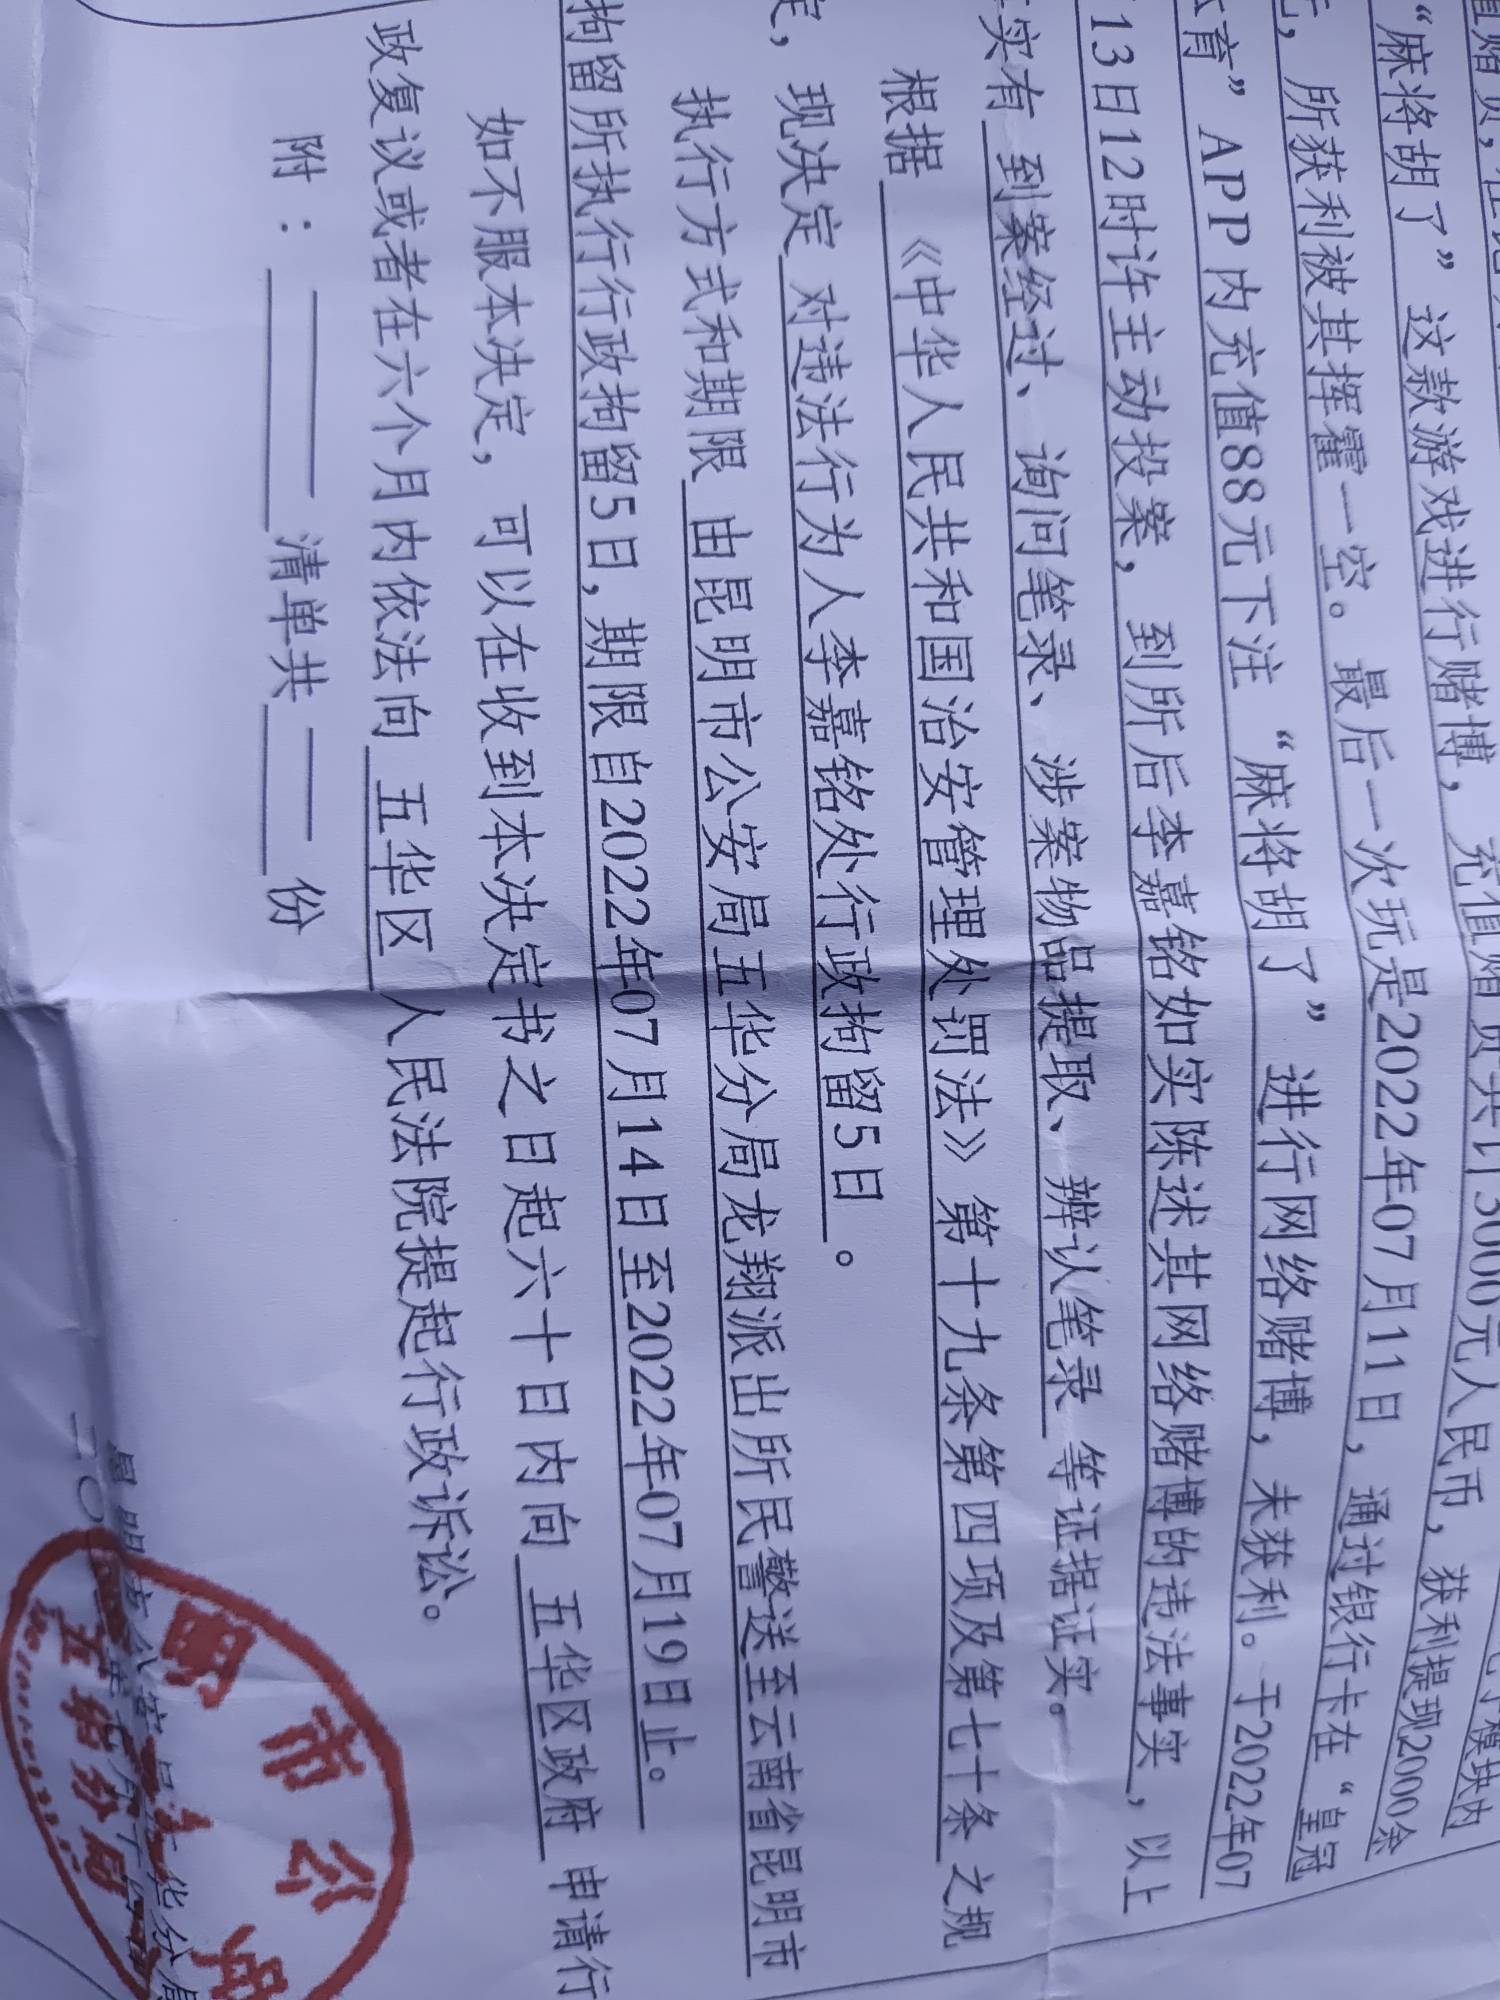 “麻将胡了”这款游戏进行赌博，充值赌资共计3000元人民币，获利提现2000余
元，所获利被其挥霍一空。最后一次玩是2022年07月11日，通过银行卡在“皇冠
体育”APP内充值88元下注“麻将胡了”进行网络赌博，未获利。于2022年07
13日12时许主动投案，到所后李嘉铭如实陈述其网络赌博的违法事实，以上
实有 到案经过、询问笔录、涉案物品提取、辨认笔录 等证据证实。
根据 《中华人民共和国治安管理处罚法》第十九条第四项及第七十条 之规
定，现决定 对违法行为人李嘉铭处行政拘留5日 。
执行方式和期限 由昆明市公安局五华分局龙翔派出所民警送至云南省昆明市
拘留所执行行政拘留5日，期限自2022年07月14日至2022年07月19日止。
如不服本决定，可以在收到本决定书之日起六十日内向 五华区政府 申请行
政复议或者在六个月内依法向 五华区 人民法院提起行政诉讼。
附： —— 清单共 — 份
市公安
五华分局